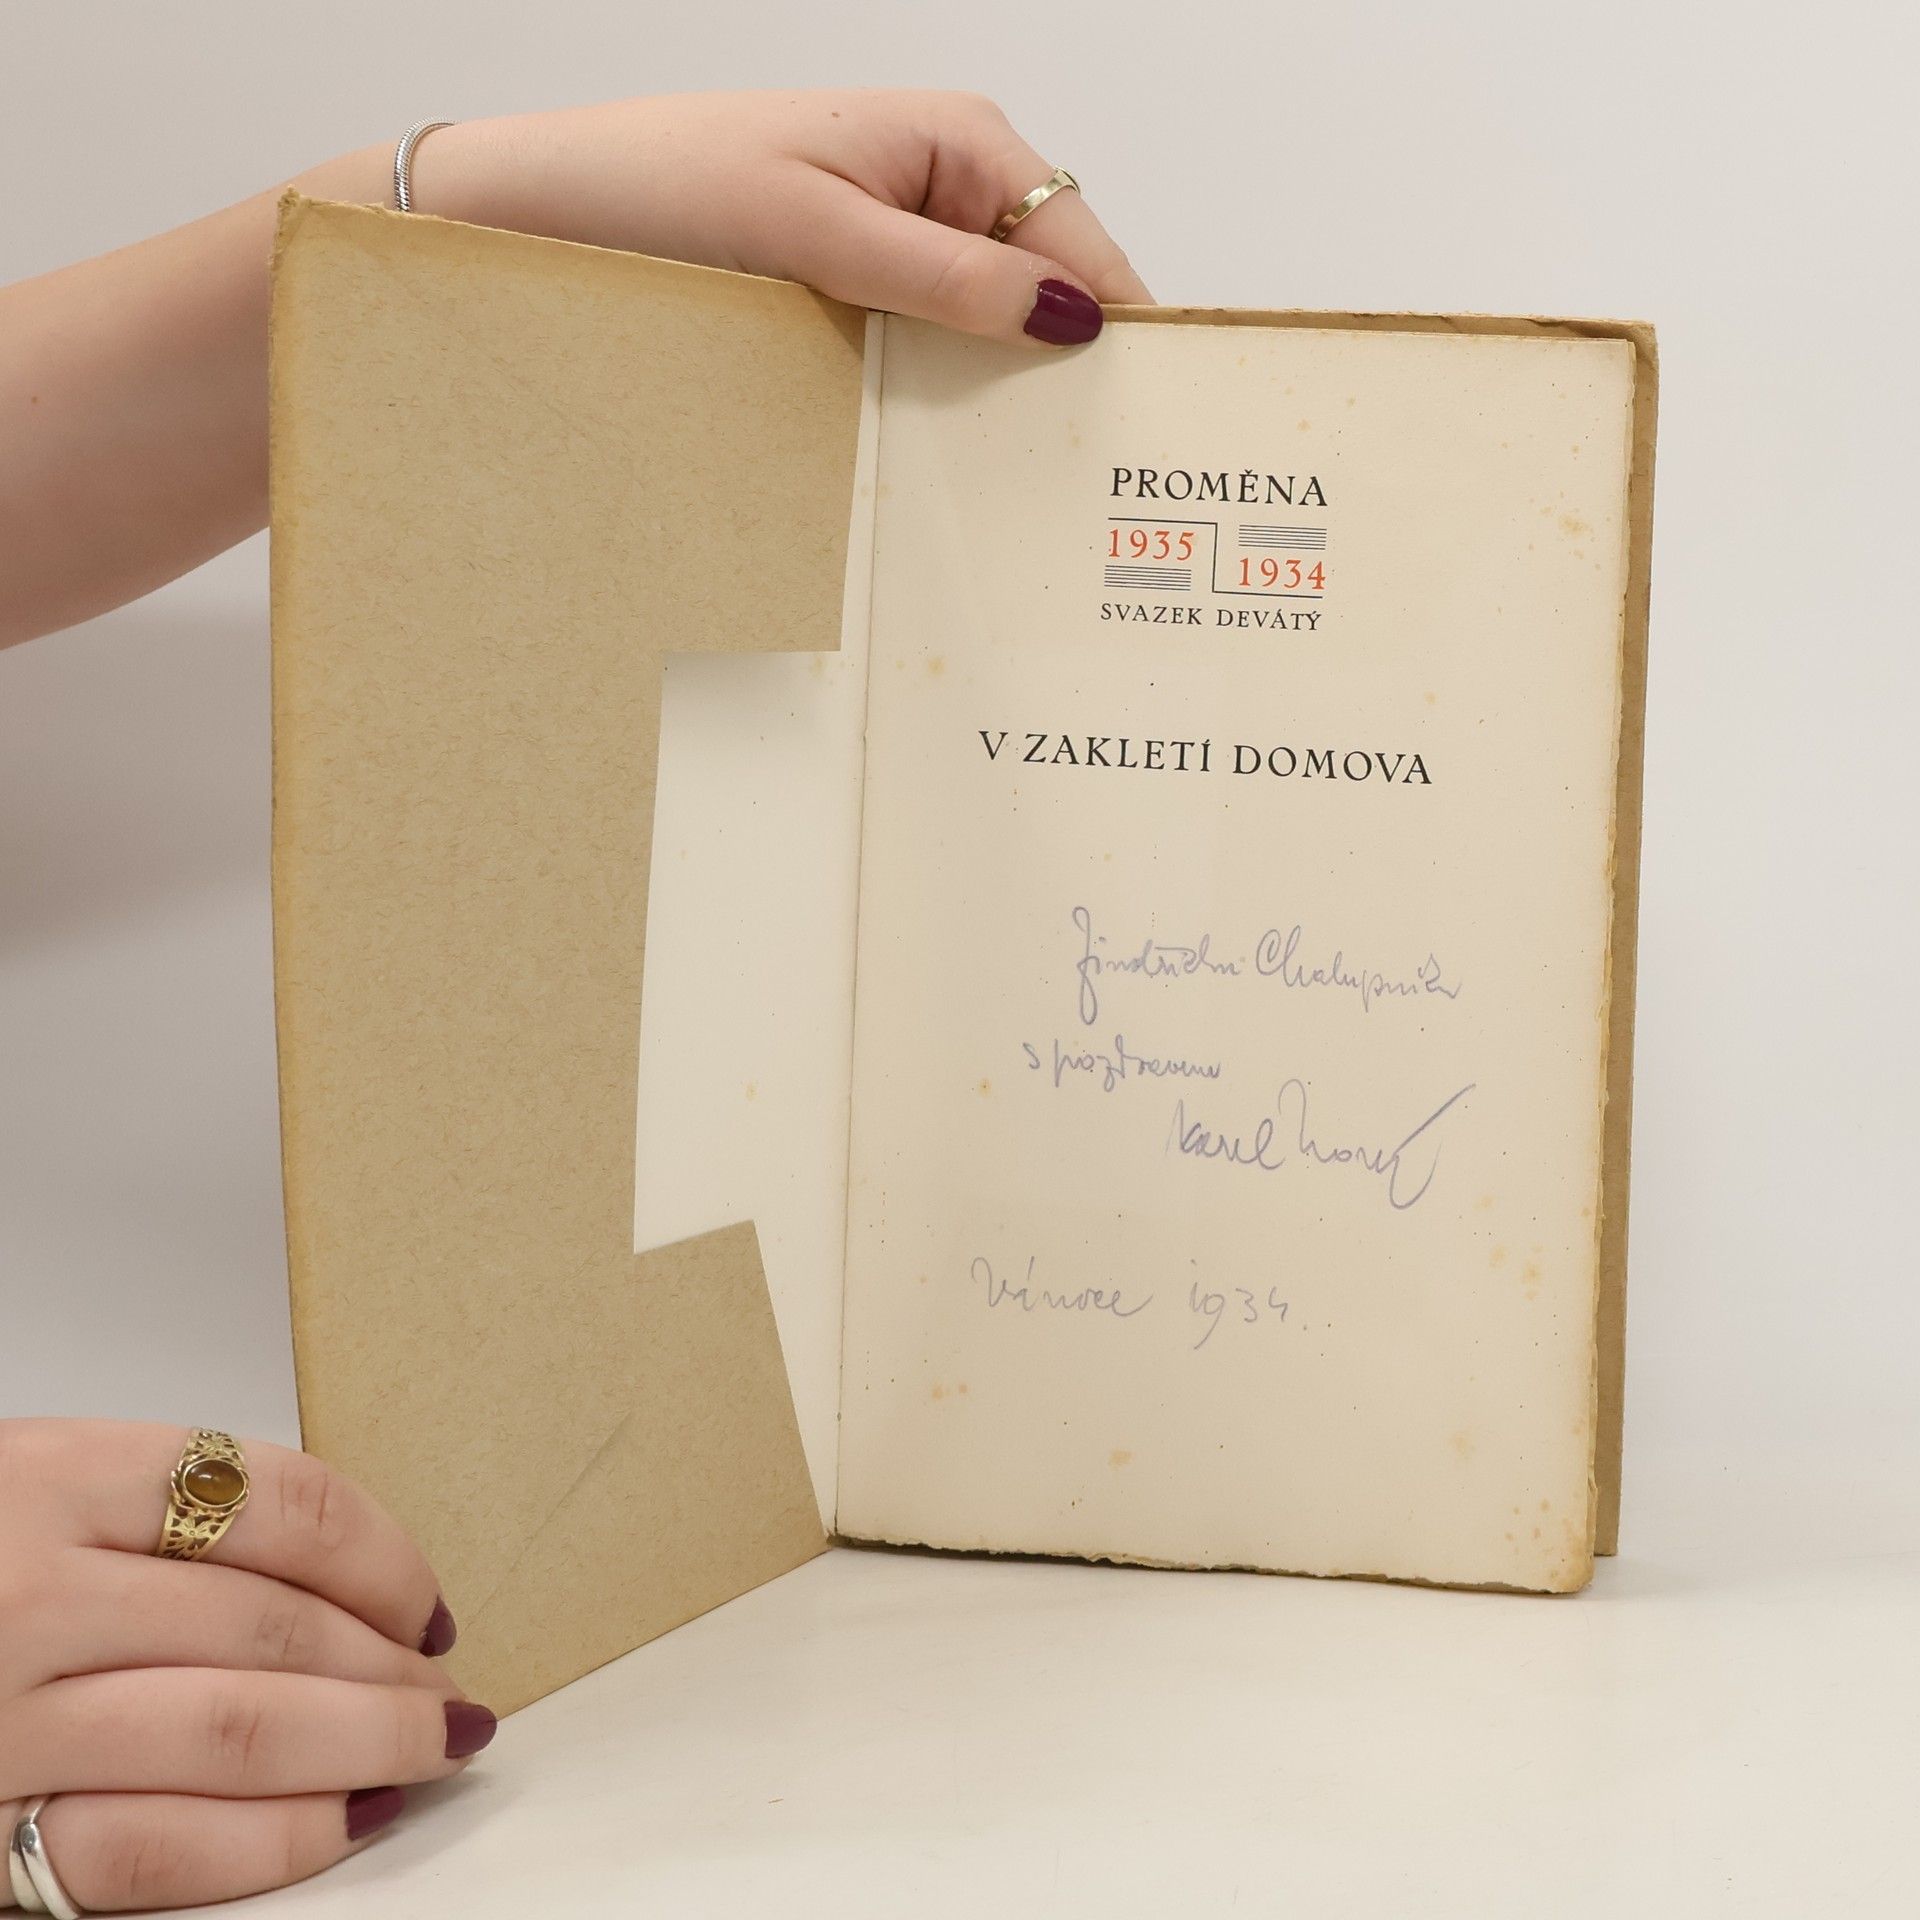 PROMĚNA
1935
1934
SVAZEK DEVÁTÝ
V ZAKLETÍ DOMOVA
Jindřichu Chalupníku
s pozdravem
Karel Nový
Vánoce 1934.